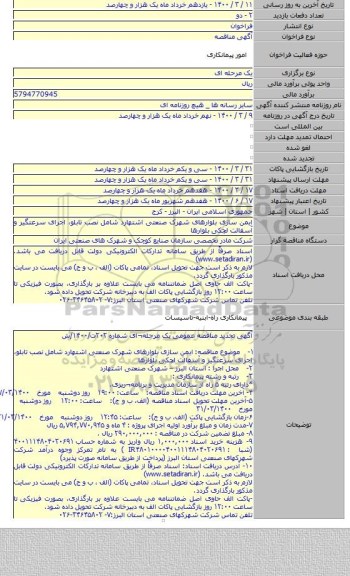 تاریخ آخرین به روز رسانی ۱۴۰۰ / ۳ / ۱۱ - یازدهم خرداد ماه یک هزار و چهارصد
تعداد دفعات بازدید ۲ - دو
نوع انتشار فراخوان
نوع فراخوان آگهی مناقصه
حوزه فعالیت فراخوان امور پیمانکاری
نوع برگزاری یک مرحله ای
واحد پولی برآورد مالی ریال
برآورد مالی 5794770945
نام روزنامه منتشر کننده آگهی سایر رسانه ها _ هیچ روزنامه ای
تاریخ درج آگهی در روزنامه ۱۴۰۰ / ۳ / ۹ - نهم خرداد ماه یک هزار و چهارصد
بین المللی است
احتمال تمدید مهلت دارد
لغو شده
تجدید شده
تاریخ بازگشایی پاکات ۱۴۰۰ / ۳ / ۳۱ - سی و یکم خرداد ماه یک هزار و چهارصد
مهلت ارسال پیشنهاد ۱۴۰۰ / ۳ / ۳۱ - سی و یکم خرداد ماه یک هزار و چهارصد
مهلت دریافت اسناد ۱۴۰۰ / ۳ / ۱۷ - هفدهم خرداد ماه یک هزار و چهارصد
تاریخ اعتبار پیشنهاد ۱۴۰۰ / ۶ / ۱۷ - هفدهم شهریور ماه یک هزار و چهارصد
کشور | استان | شهر جمهوری اسلامی ایران - البرز - کرج
موضوع ایمن سازی بلوارهای شهرک صنعتی اشتهارد شامل نصب تابلو، اجرای سرعتگیر و
آسفالت لچکی بلوارها
دستگاه مناقصه گزار شرکت مادر تخصصی سازمان صنایع کوچک و شهرک های صنعتی ایران
محل دریافت اسناد
اسناد صرفاً از طریق سامانه تدارکات الکترونیکی دولت قابل دریافت می باشد. (www.setadiran.ir)
لازم به ذکر است جهت تحویل اسناد، تمامی پاکات (الف ، ب و ج) می بایست در سایت مذکور بارگذاری گردد.
-پاکت الف حاوی اصل ضمانتنامه می بایست علاوه بر بارگذاری، بصورت فیزیکی تا ساعت ۱۲:۰۰ روز بازگشایی پاکات الف به دبیرخانه شرکت تحویل داده شود.
تلفن تماس شرکت شهرکهای صنعتی استان البرز:
طبقه بندی موضوعی پیمانکاری راه-ابنیه-تاسیسات
توضیحات
آگهی تجدید مناقصه عمومی یک مرحله ای شماره
۱- موضوع مناقصه: ایمن سازی بلوارهای شهرک صنعتی اشتهارد شامل نصب تابلو، اجرای سرعتگیر و آسفالت لچکی بلوارها
۲- محل اجرا : استان البرز – شهرک صنعتی اشتهارد
۳- رتبه و رشته پیمانکاری :
-دارای رتبه ۵ راه از سازمان مدیریت و برنامه ریزی.
۴-آخرین مهلت دریافت اسناد مناقصه: ساعت: ۱۹:۰۰ روز دوشنبه مورخ
۵-آخرین مهلت تحویل اسناد مناقصه (الف، ب و ج): ساعت: ۱۲:۰۰ روز دوشنبه مورخ ۱۴۰۰/۰۳/۳۱
۶-زمان بازگشایی پاکت (الف، ب و ج): ساعت: ۱۲:۴۵ روز دوشنبه مورخ ۱۴۰۰/۰۳/۳۱
۷-مدت زمان و مبلغ برآورد اولیه اجرای پروژه : ۴ ماه و ۵,۷۹۴,۷۷۰,۹۴۵ ریال
۸- مبلغ تضمین شرکت در مناقصه : ۲۹۰,۰۰۰,۰۰۰ ریال.
۹- هزینه خرید اسناد ۱,۰۰۰,۰۰۰ ریال واریز به شماره حساب
به نام تمرکز وجوه درآمد شرکت شهرکهای صنعتی استان البرز (پرداخت از طریق سامانه صورت پذیرد)
۱۰- آدرس دریافت اسناد: اسناد صرفاً از طریق سامانه تدارکات الکترونیکی دولت قابل دریافت می باشد. (www.setadiran.ir)
لازم به ذکر است جهت تحویل اسناد، تمامی پاکات (الف ، ب و ج) می بایست در سایت مذکور بارگذاری گردد.
-پاکت الف حاوی اصل ضمانتنامه می بایست علاوه بر بارگذاری، بصورت فیزیکی تا ساعت ۱۲:۰۰ روز بازگشایی پاکات الف به دبیرخانه شرکت تحویل داده شود.
تلفن تماس شرکت شهرکهای صنعتی استان البرز: